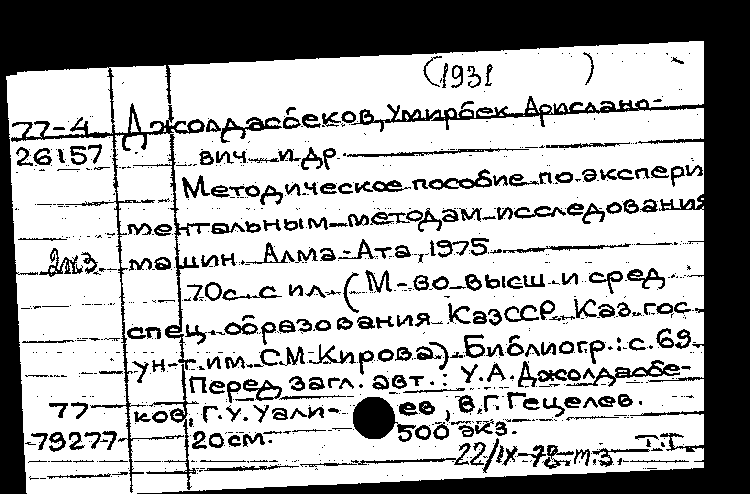 (1931 )
77-4 Джолдасбеков, Умирбек Арислано-
26157 вич и др.
Методическое пособие по экспери
ментальным методам исследования
2экз. машин. Алма-Ата, 1975
70с. с ил. (М-во высш. и сред.
спец. образования КазССР. Каз. гос.
ун-т. им. С.М. Кирова). Библиогр.: с. 69
Перед загл. авт.: У.А. Джолдасбе-
77 ков, Г.У. Уали- ев, В.Г. Гецелев.
79277 20см. 500 экз.
22/IX-78. т.з. Т.Т.